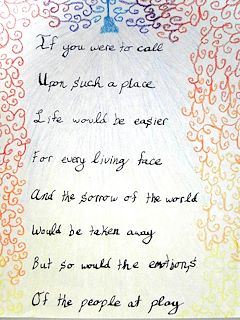 If you were to call
Upon such a place
Life would be easier
For every living face
And the sorrow of the world
Would be taken away
But so would the emotions
Of the people at play